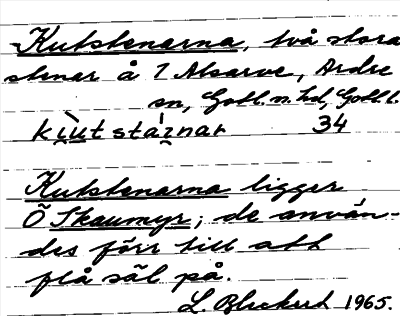 Kutstenarna, två stora
stenar å 7 Alsarve, Ardre
sn, Gotl. n. hd, Gotl. l.
kiut stáinar 34
Kutstenarna ligger
Ö Skaumyr; de använ-
des förr till att
flå säl på.
L. Blockert 1965.